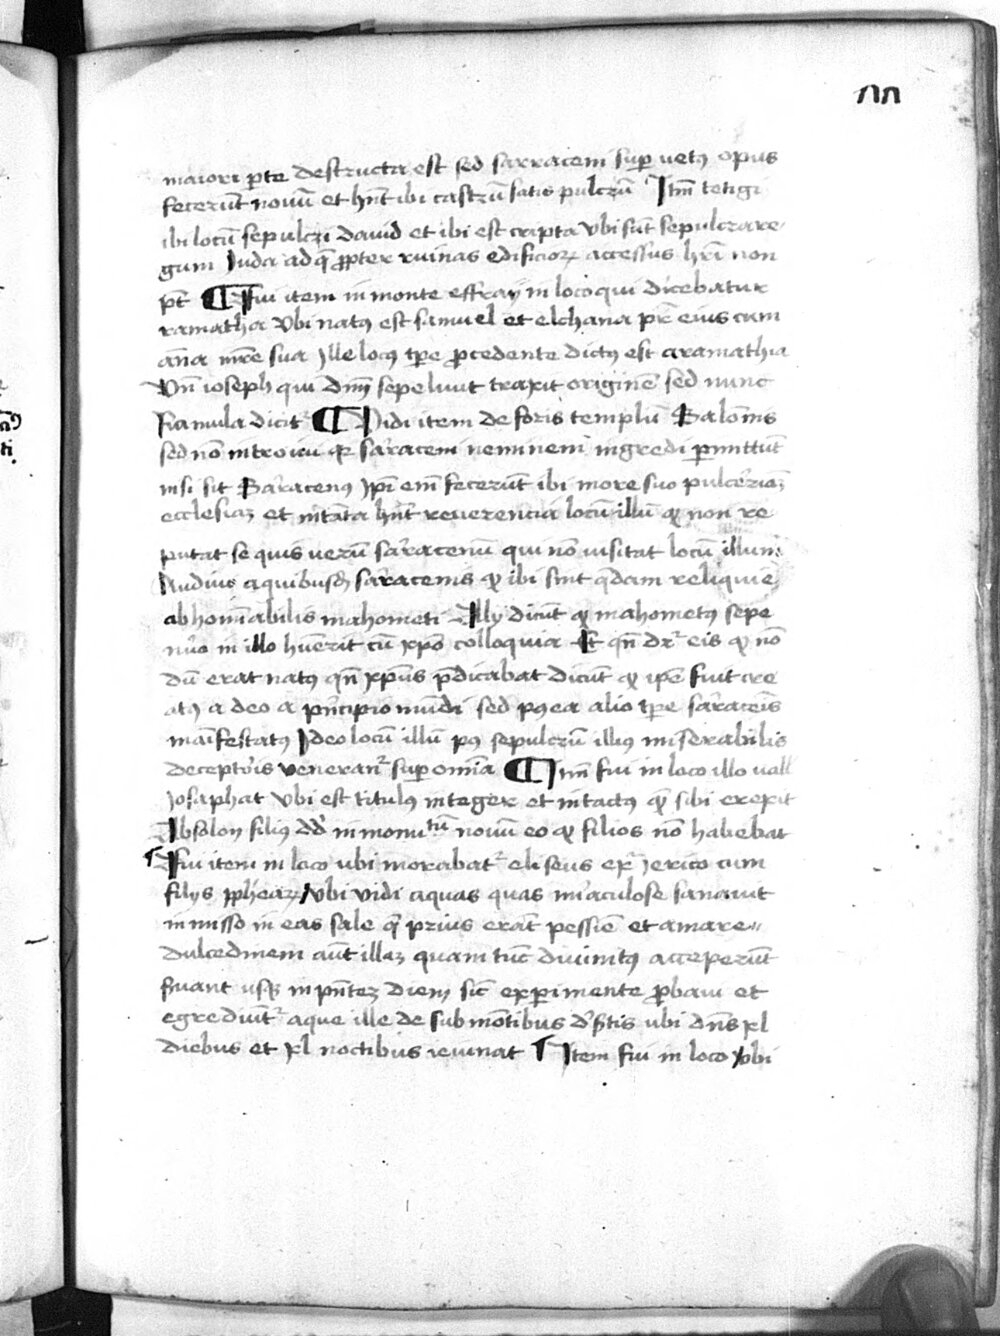 maiori pte destructa est sed sarraceni sup vetꝯ opus
fecerūt nouū et hn̄t ibi castrū satis pulcrū Itm̄ tetigi
ibi locū sepulcri dauid et ibi est cripta vbi sūt sepulcra re
gum Iuda ad q̄ ꝓpter ruinas edificioꝝ accessus hr̄i non
pt̄ ¶ Fui item in monte effraym loco qui dicebatur
ramatha vbi natꝯ est samuel et elchana pr̄ eius cum
āna mr̄e sua Ille locꝯ tpr̄e ꝓcedente dictꝯ est aramathia
Vn̄ ioseph qui dn̄m sepeliuit traxit originē sed nunc
Ramula dicit᷑ ¶ Vidi item de foris templū Salomīs
sed nō introiui qꝛ saraceni neminem ingredi pmittūt
nisi sit Saracenꝯ Ipi em̄ fecerūt ibi more suo pulcerīaꝫ
ecclesiaꝫ et in tāta hn̄t reuerencia locū illū qd non re
putat se quis verū saracenū qui nō visitat locū illum
Audiui a quibusdā saracenis qd ibi sint q̄dam reliquie
abhomīabilis mahometi Illy dicūt qd mahometꝯ sepe
nūo in illo huerit cū xpō colloquia Et qn̄ dr̄ eis qd nō
dū erat natꝯ qn̄ xp̄us p̄dicabat dicūt qd ip̄e fuit cre
atꝯ a deo a pn̄cipio mūdi sed pꝯea alio tpr̄e saracēis
maīfestatꝯ Ideo locū illū pꝯ sepulcrū illiꝯ miserabilis
deceptoris veneran᷑ sup omīa ¶ Itm̄ fui in loco illo vall
Iosaphat vbi est titulꝯ integer et intactꝯ q̄ sibi erexit
Absolon filiꝯ dd̄ in monumētū nouū eo qd filios nō habebat
¶ Fui item in loco vbi morabat᷑ eliseus ex̄ Ierico cum
filys ꝓphetaꝝ vbi vidi aquas quas miraculose sanauit
inmisso in eas sale q̄ prius erāt pessīe et amare
dulcedinem aūt illaꝫ quam tūc diuinitꝯ acceperūt
seruant usqꝫ in pn̄teꝫ diem sic̄ expimente ꝓbaui et
egrediūt᷑ aque ille de sub mōtibus dsertis ubi dn̄s xl
diebus et xl noctibus ieiunat ¶ Item fui in loco vbi